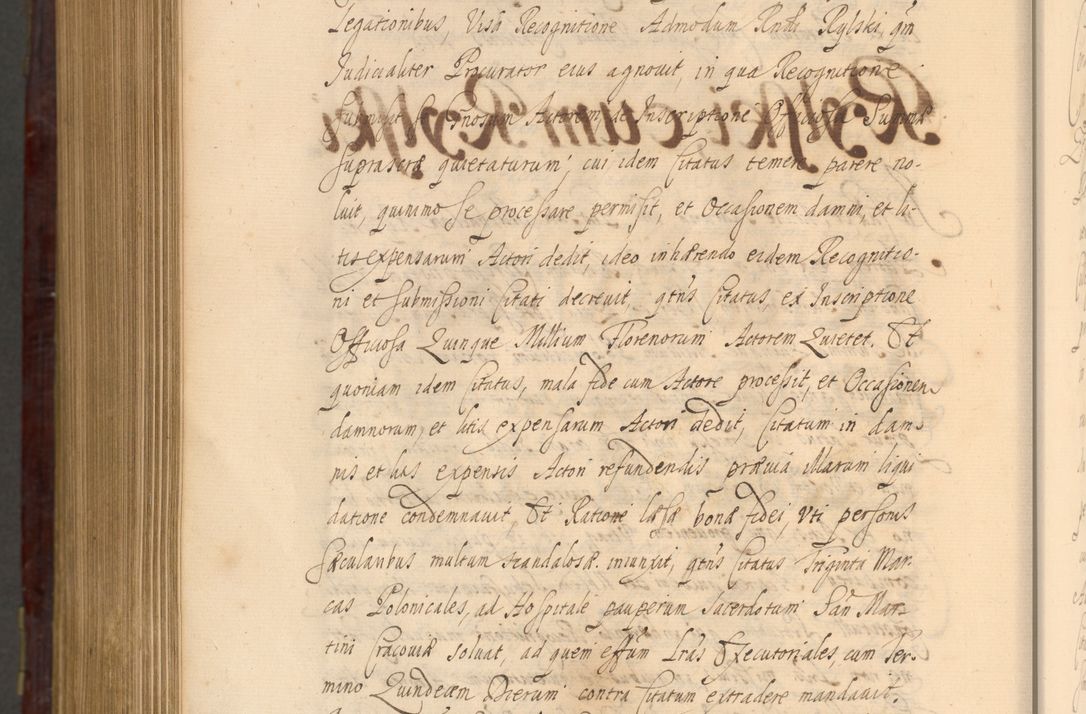 Legationibus, Visa Recognitione Admodum Rndi Rylski, qm
Judicialiter Procurator eius agnovit, in qua Recognitione
submisit se Actorem de Inscriptione Officiosa Summa
suprascrae quietaturum, cui idem Citatus temere parere no-
luit, quinimo se processare permisit, et Occasionem damni, et li-
tis expensarum Actori dedit, ideo inhaerendo eidem Recognitio-
ni et submissioni Citati decrevit, qtns Citatus, ex Inscriptione
Officiosa Quinque Millium Florenorum Actorem Quietet. Et
quoniam idem Citatus, mala fide cum Actore processit, et Occasionem
damnorum, et litis expensarum Actori dedit, Citatum in dam-
nis et lit̃is expensis Actori refundendis praevia illarum liqui
datione condemnavit, Et Ratione laesae bonae fidei, Uti personis
saecularibus multum scandalosae iniunxit, qtns Citatus Triginta Mar-
cas Polonicales, ad Hospitale pauperum Sacerdotum San Mar-
tini Cracoviae solvat, ad quem effum Lras Executoriales, cum Ter-
mino Quindecem Dierum contra Citatum extradere mandavit.